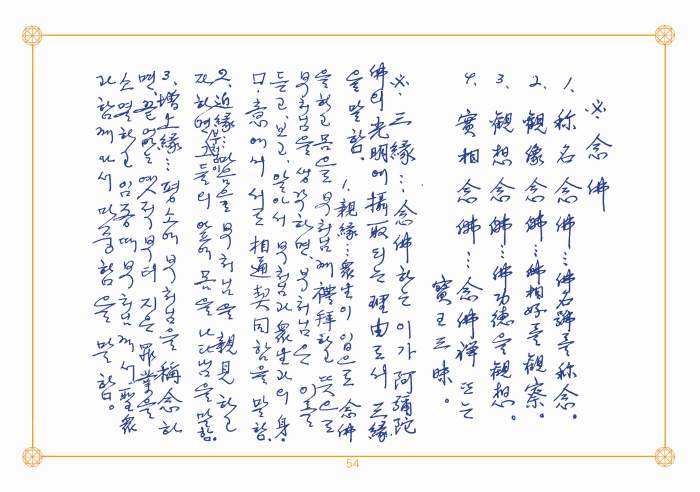 ※ 念佛
1. 称名念佛…佛名號를 称念.
2. 觀像念佛…佛相好를 觀察.
3. 觀想念佛…佛功德을 觀想.
4. 實相念佛…念佛禪 또는
寶王三昧.
※. 三緣…念佛하는 이가 阿彌陀
佛의 光明에 攝取되는 理由로서 三緣
을 말함.
1. 親緣…衆生이 입으로 念佛
을 하고 몸으로 부처님께 禮拜하고 뜻으로
부처님을 생각하면, 부처님은 이를
듣고, 보고, 알아서 부처님과 衆生과의 身.
口.意에서 서로 相通 契同함을 말함.
2. 近緣…마음으로 부처님을 親見하고
자하면 부처님이 그들의 앞에 몸을 나타냄을 말함.
3. 增上緣…평소에 부처님을 稱念하
면 끝없는 옛적부터 지은 罪業을
소멸하고 임종때 부처님께서 聖衆
과 함께 와서 마중함을 말함.
54